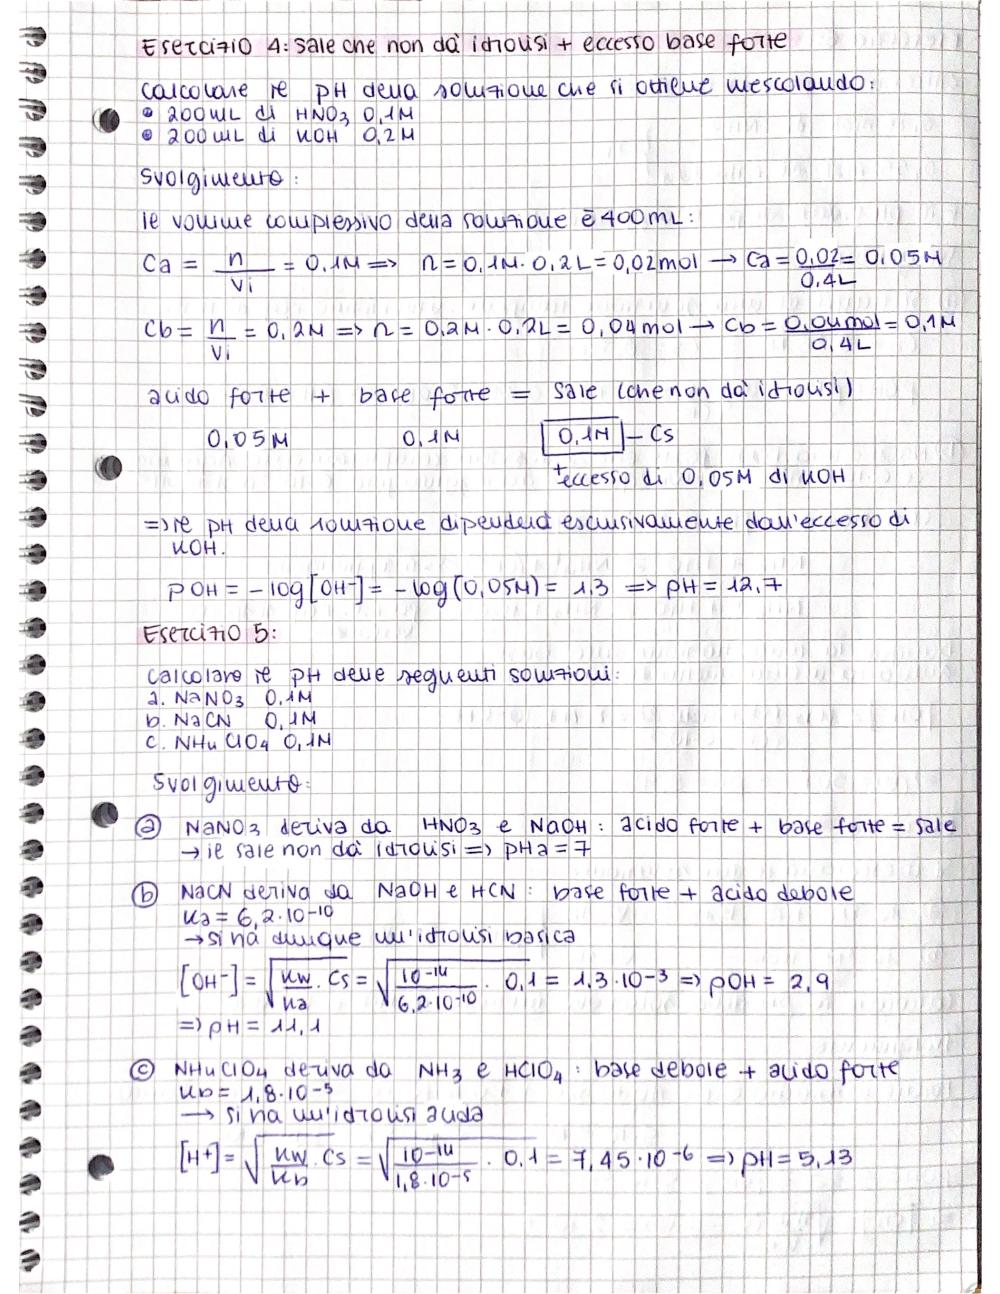 Esercizio 4: sale che non dà idrolisi + eccesso base forte
calcolare il pH della soluzione che si ottiene mescolando:
• 200mL di HNO3 0,1M
• 200mL di KOH 0,2M
Svolgimento:
il volume complessivo della soluzione è 400mL:
Ca = n/Vi = 0,1M => n = 0,1M · 0,2L = 0,02mol → Ca = 0,02/0,4L = 0,05M
Cb = n/Vi = 0,2M => n = 0,2M · 0,2L = 0,04mol → Cb = 0,04mol/0,4L = 0,1M
acido forte + base forte = sale (che non dà idrolisi)
0,05M 0,1M 0,1M – Cs
+ eccesso di 0,05M di KOH
=> il pH della soluzione dipenderà esclusivamente dall'eccesso di
KOH.
pOH = -log[OH⁻] = -log(0,05M) = 1,3 => pH = 12,7
Esercizio 5:
calcolare il pH delle seguenti soluzioni:
a. NaNO3 0,1M
b. NaCN 0,1M
c. NH4ClO4 0,1M
Svolgimento:
ⓐ NaNO3 deriva da HNO3 e NaOH: acido forte + base forte = sale
→ il sale non dà idrolisi => pHa = 7
ⓑ NaCN deriva da NaOH e HCN: base forte + acido debole
Ka = 6,2·10⁻¹⁰
→ si ha dunque un'idrolisi basica
[OH⁻] = √(Kw/Ka · Cs) = √(10⁻¹⁴/6,2·10⁻¹⁰ · 0,1) = 1,3·10⁻³ => pOH = 2,9
=> pH = 11,1
ⓒ NH4ClO4 deriva da NH3 e HClO4: base debole + acido forte
Kb = 1,8·10⁻⁵
→ si ha un'idrolisi acida
[H⁺] = √(Kw/Kb · Cs) = √(10⁻¹⁴/1,8·10⁻⁵ · 0,1) = 7,45·10⁻⁶ => pH = 5,13